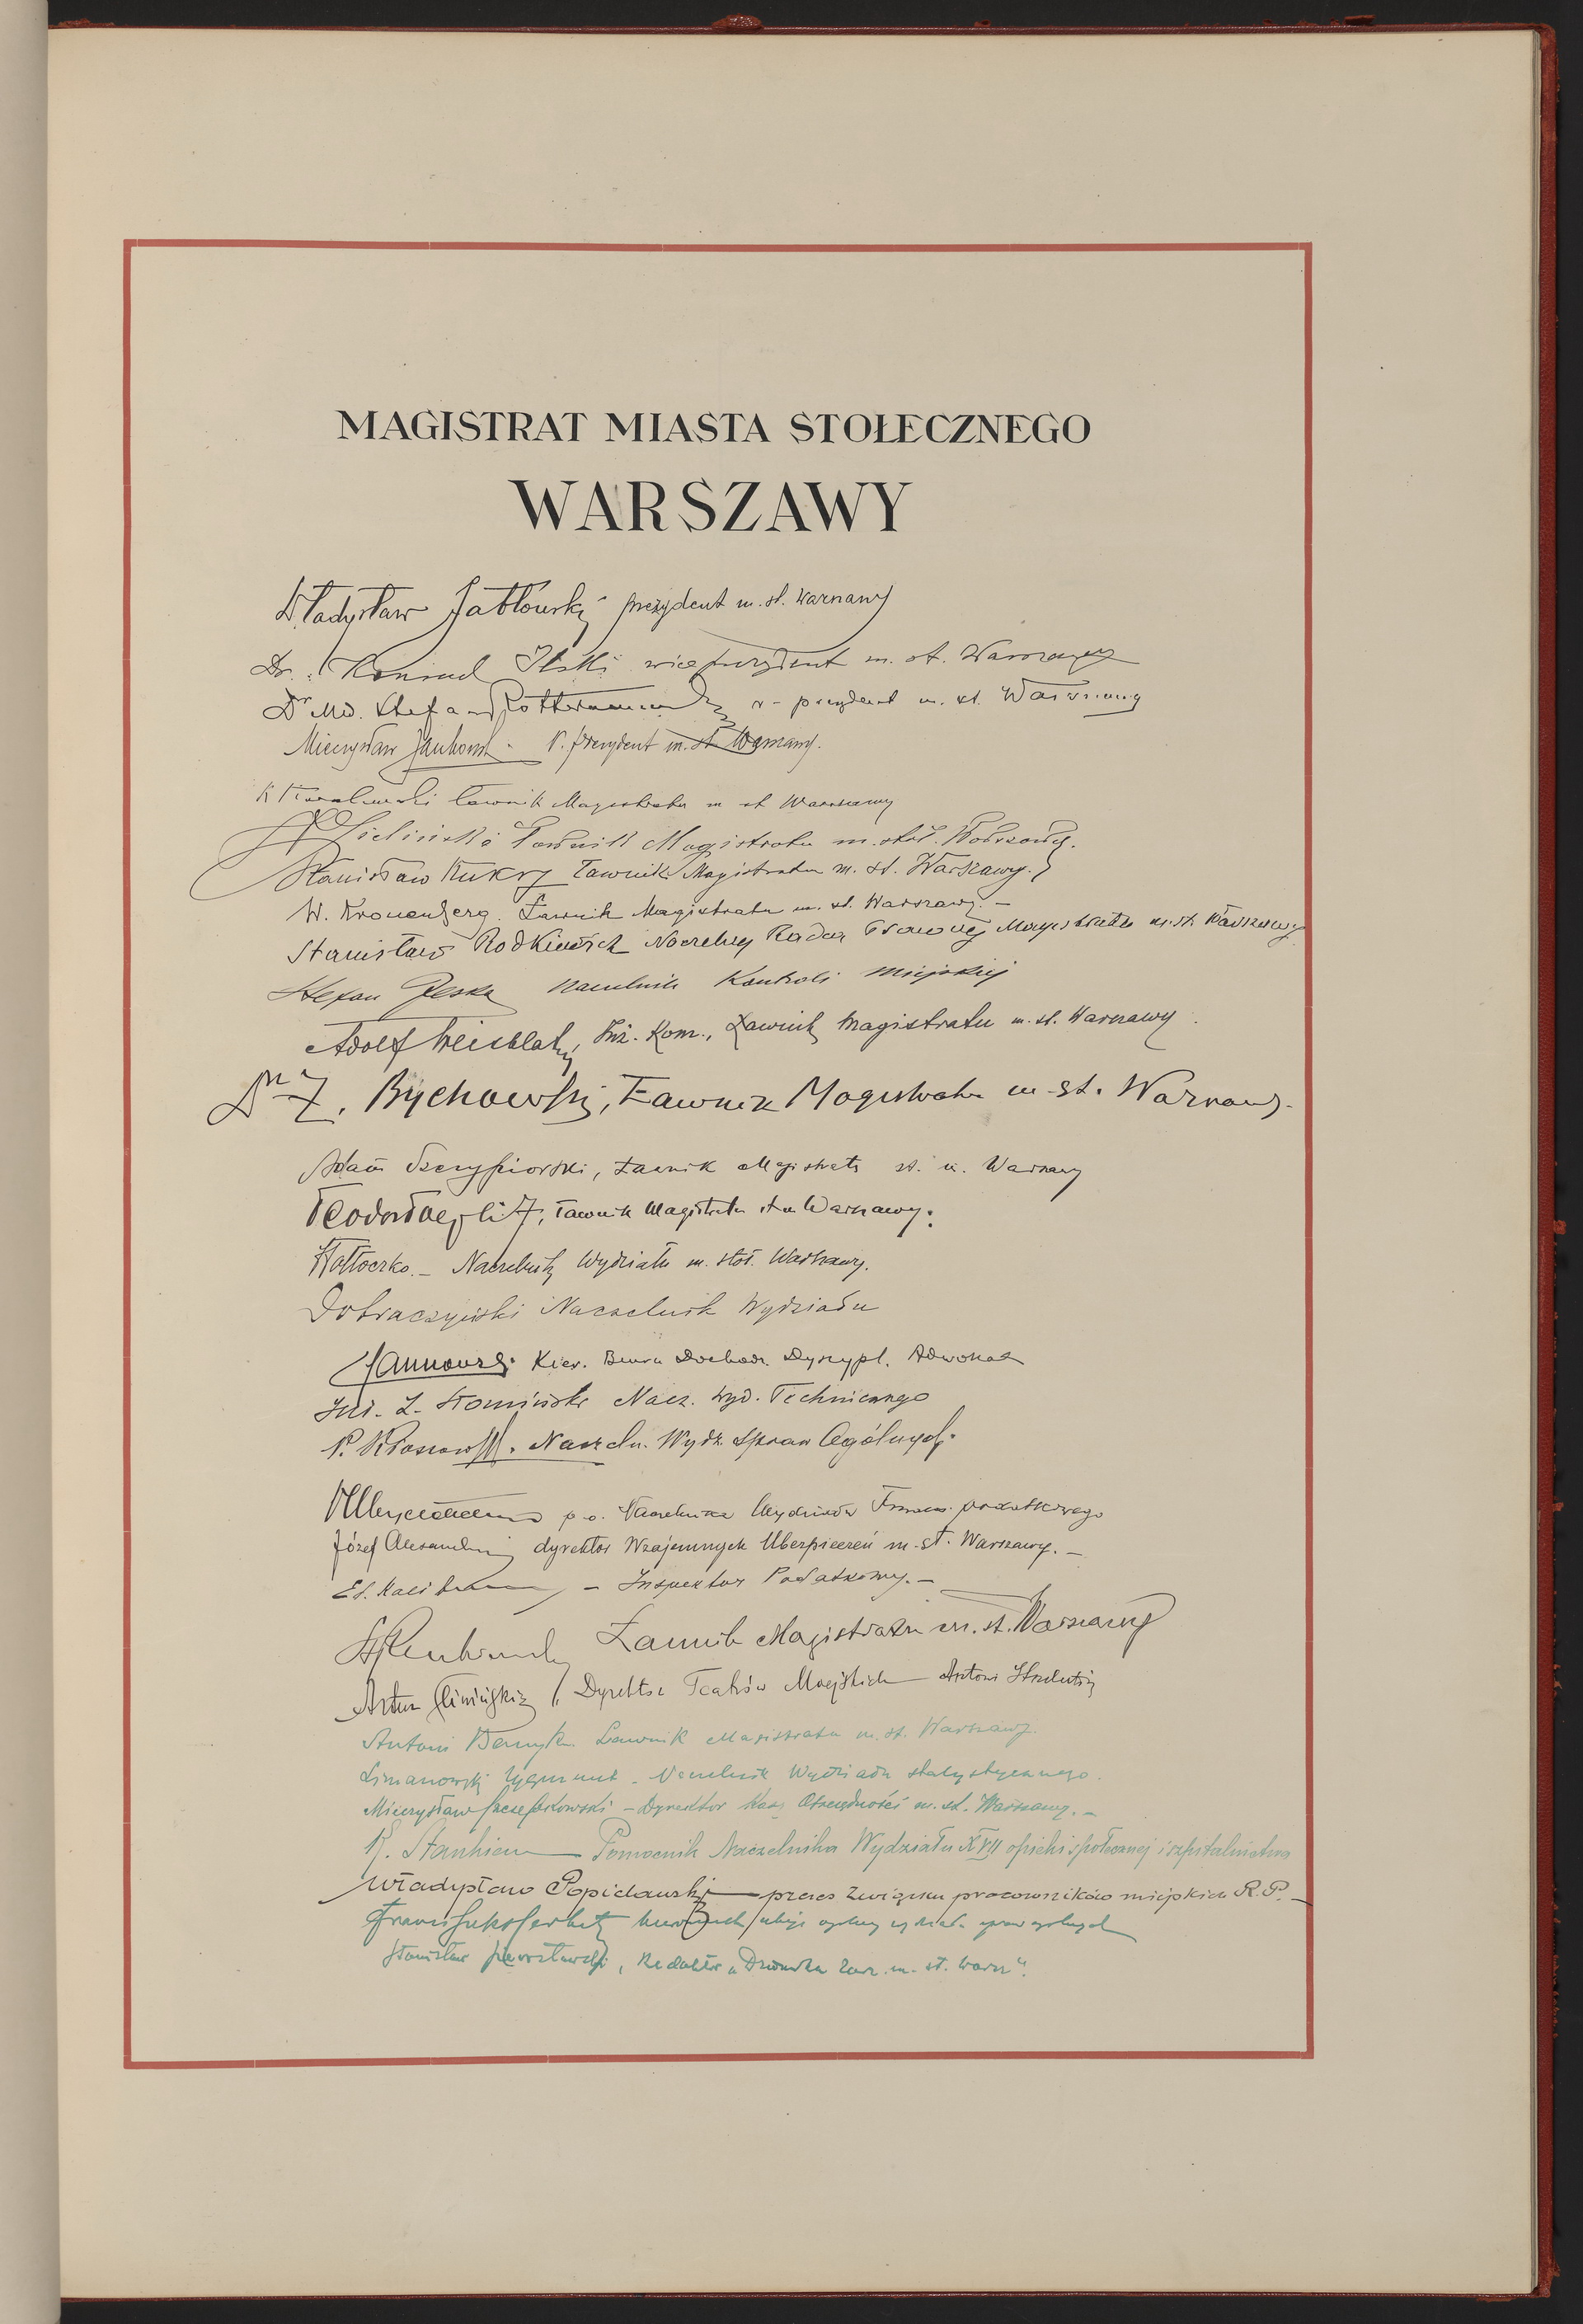 MAGISTRAT MIASTA STOŁECZNEGO
WARSZAWY
Władysław Jabłoński prezydent m. st. Warszawy
Dr. Konrad Ilski wiceprezydent m. st. Warszawy
Dr Md. Stefan v-prezydent m. st. Warszawy
Mieczysław Jankowski V. prezydent m. st. Warszawy.
K Kowalewski ławnik Magistratu m st Warszawy
Zieliński Ławnik Magistratu m. stoł. Warszawy.
Stanisław Kukrz Ławnik Magistratu m. st. Warszawy.
W. Kronenberg. Ławnik Magistratu m. st. Warszawy. —
Stanisław Rodkiewicz Naczelny Radca Prawny Magistratu m. st. Warszawy
Stefan Peska naczelnik Kontroli Miejskiej
Adolf Weisblat, Inż. Kom., Ławnik Magistratu m. st. Warszawy.
Dr Z. Bychowski, Ławnik Magistratu m. st. Warszawy.
Adam Szczypiorski, Ławnik Magistratu st. m. Warszawy
Teodor Toeplitz, Ławnik Magistratu st m Warszawy.
Kołłoczko. — Naczelnik Wydziału m. stoł. Warszawy.
Dobraczyński Naczelnik Wydziału
Kier. Biura Dochodz. Dyscypl. Adwokat
Inż. Z. Słomiński Nacz. Wyd. Technicznego
P. Kłossowski. Naczeln. Wydz. Spraw Ogólnych.
p. o. Naczelnika Wydziału podatkowego
Józef dyrektor Wzajemnych Ubezpieczeń m. st. Warszawy. —
— Inspektor Podatkowy. —
Ławnik Magistratu m. st. Warszawy
Artur Śliwiński Dyrektor Teatrów Miejskich Antoni
Antoni Ławnik Magistratu m. st. Warszawy.
Limanowski Zygmunt - Naczelnik Wydziału statystycznego.
Mieczysław Szczepkowski — Dyrektor Kasy Oszczędności m. st. Warszawy. —
Pomocnik Naczelnika Wydziału XVII opieki społecznej i szpitalnictwa
Władysław Popielawski — prezes Związku pracowników miejskich R. P. —
Stanisław, Redaktor „Dziennika Zarz. m. st. Warsz".